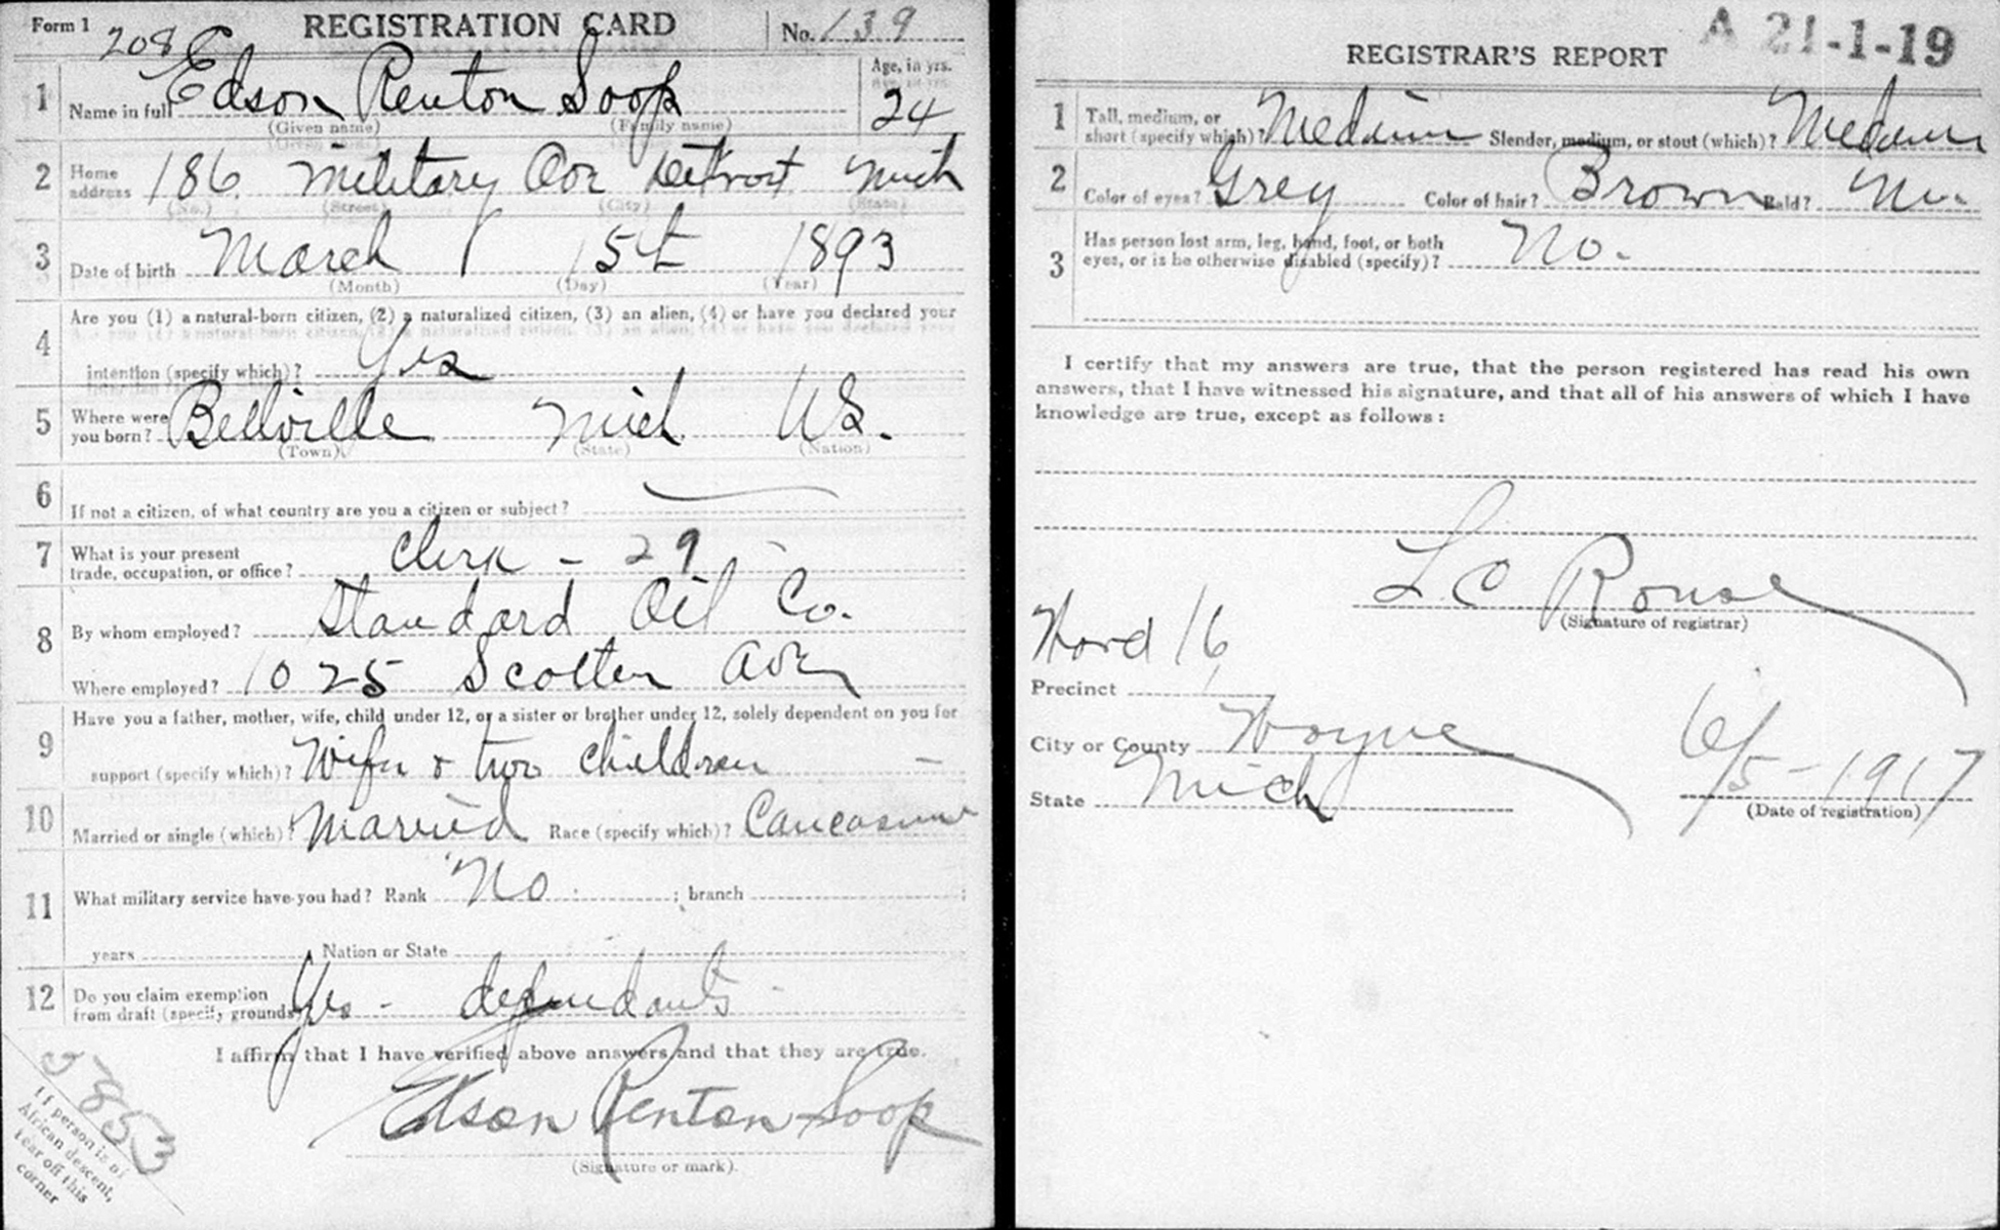 Form 1 REGISTRATION CARD No. 139
208
1 Name in full Edson Renton Soop Age, in yrs. 24
(Given name) (Family name)
2 Home address 186 Military Ave Detroit Mich
(No.) (Street) (City) (State)
3 Date of birth March 15th 1893
(Month) (Day) (Year)
4 Are you (1) a natural-born citizen, (2) a naturalized citizen, (3) an alien, (4) or have you declared your
intention (specify which)? Yes
5 Where were you born? Bellville Mich US.
(Town) (State) (Nation)
6 If not a citizen, of what country are you a citizen or subject?
7 What is your present trade, occupation, or office? Clerk - 29
8 By whom employed? Standard Oil Co.
Where employed? 1025 Scotten Ave
9 Have you a father, mother, wife, child under 12, or a sister or brother under 12, solely dependent on you for
support (specify which)? Wife & two children
10 Married or single (which)? Married Race (specify which)? Caucasian
11 What military service have you had? Rank No ; branch ;
years Nation or State
12 Do you claim exemption from draft (specify grounds)? Yes - dependants -
I affirm that I have verified above answers and that they are true.
Edson Renton Soop
(Signature or mark).
5853
If person is of
African descent,
tear off this
corner
A 21-1-19
REGISTRAR'S REPORT
1 Tall, medium, or short (specify which)? Medium Slender, medium, or stout (which)? Medium
2 Color of eyes? Grey Color of hair? Brown Bald? No.
3 Has person lost arm, leg, hand, foot, or both
eyes, or is he otherwise disabled (specify)? No.
I certify that my answers are true, that the person registered has read his own
answers, that I have witnessed his signature, and that all of his answers of which I have
knowledge are true, except as follows:
L C Rouse
(Signature of registrar)
Ward 16
Precinct 1
City or County Wayne
State Mich
6/5-1917
(Date of registration)